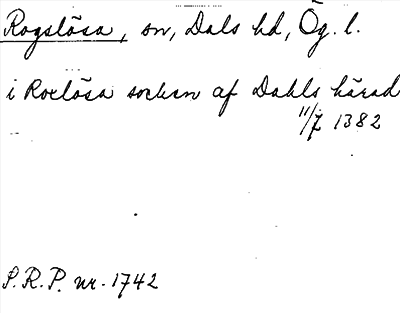 Rogslösa, sn, Dals hd, Ög. l.
i Roxlösa sochsn af Dahls härad
11/7 1382
S.R.P. nr. 1742